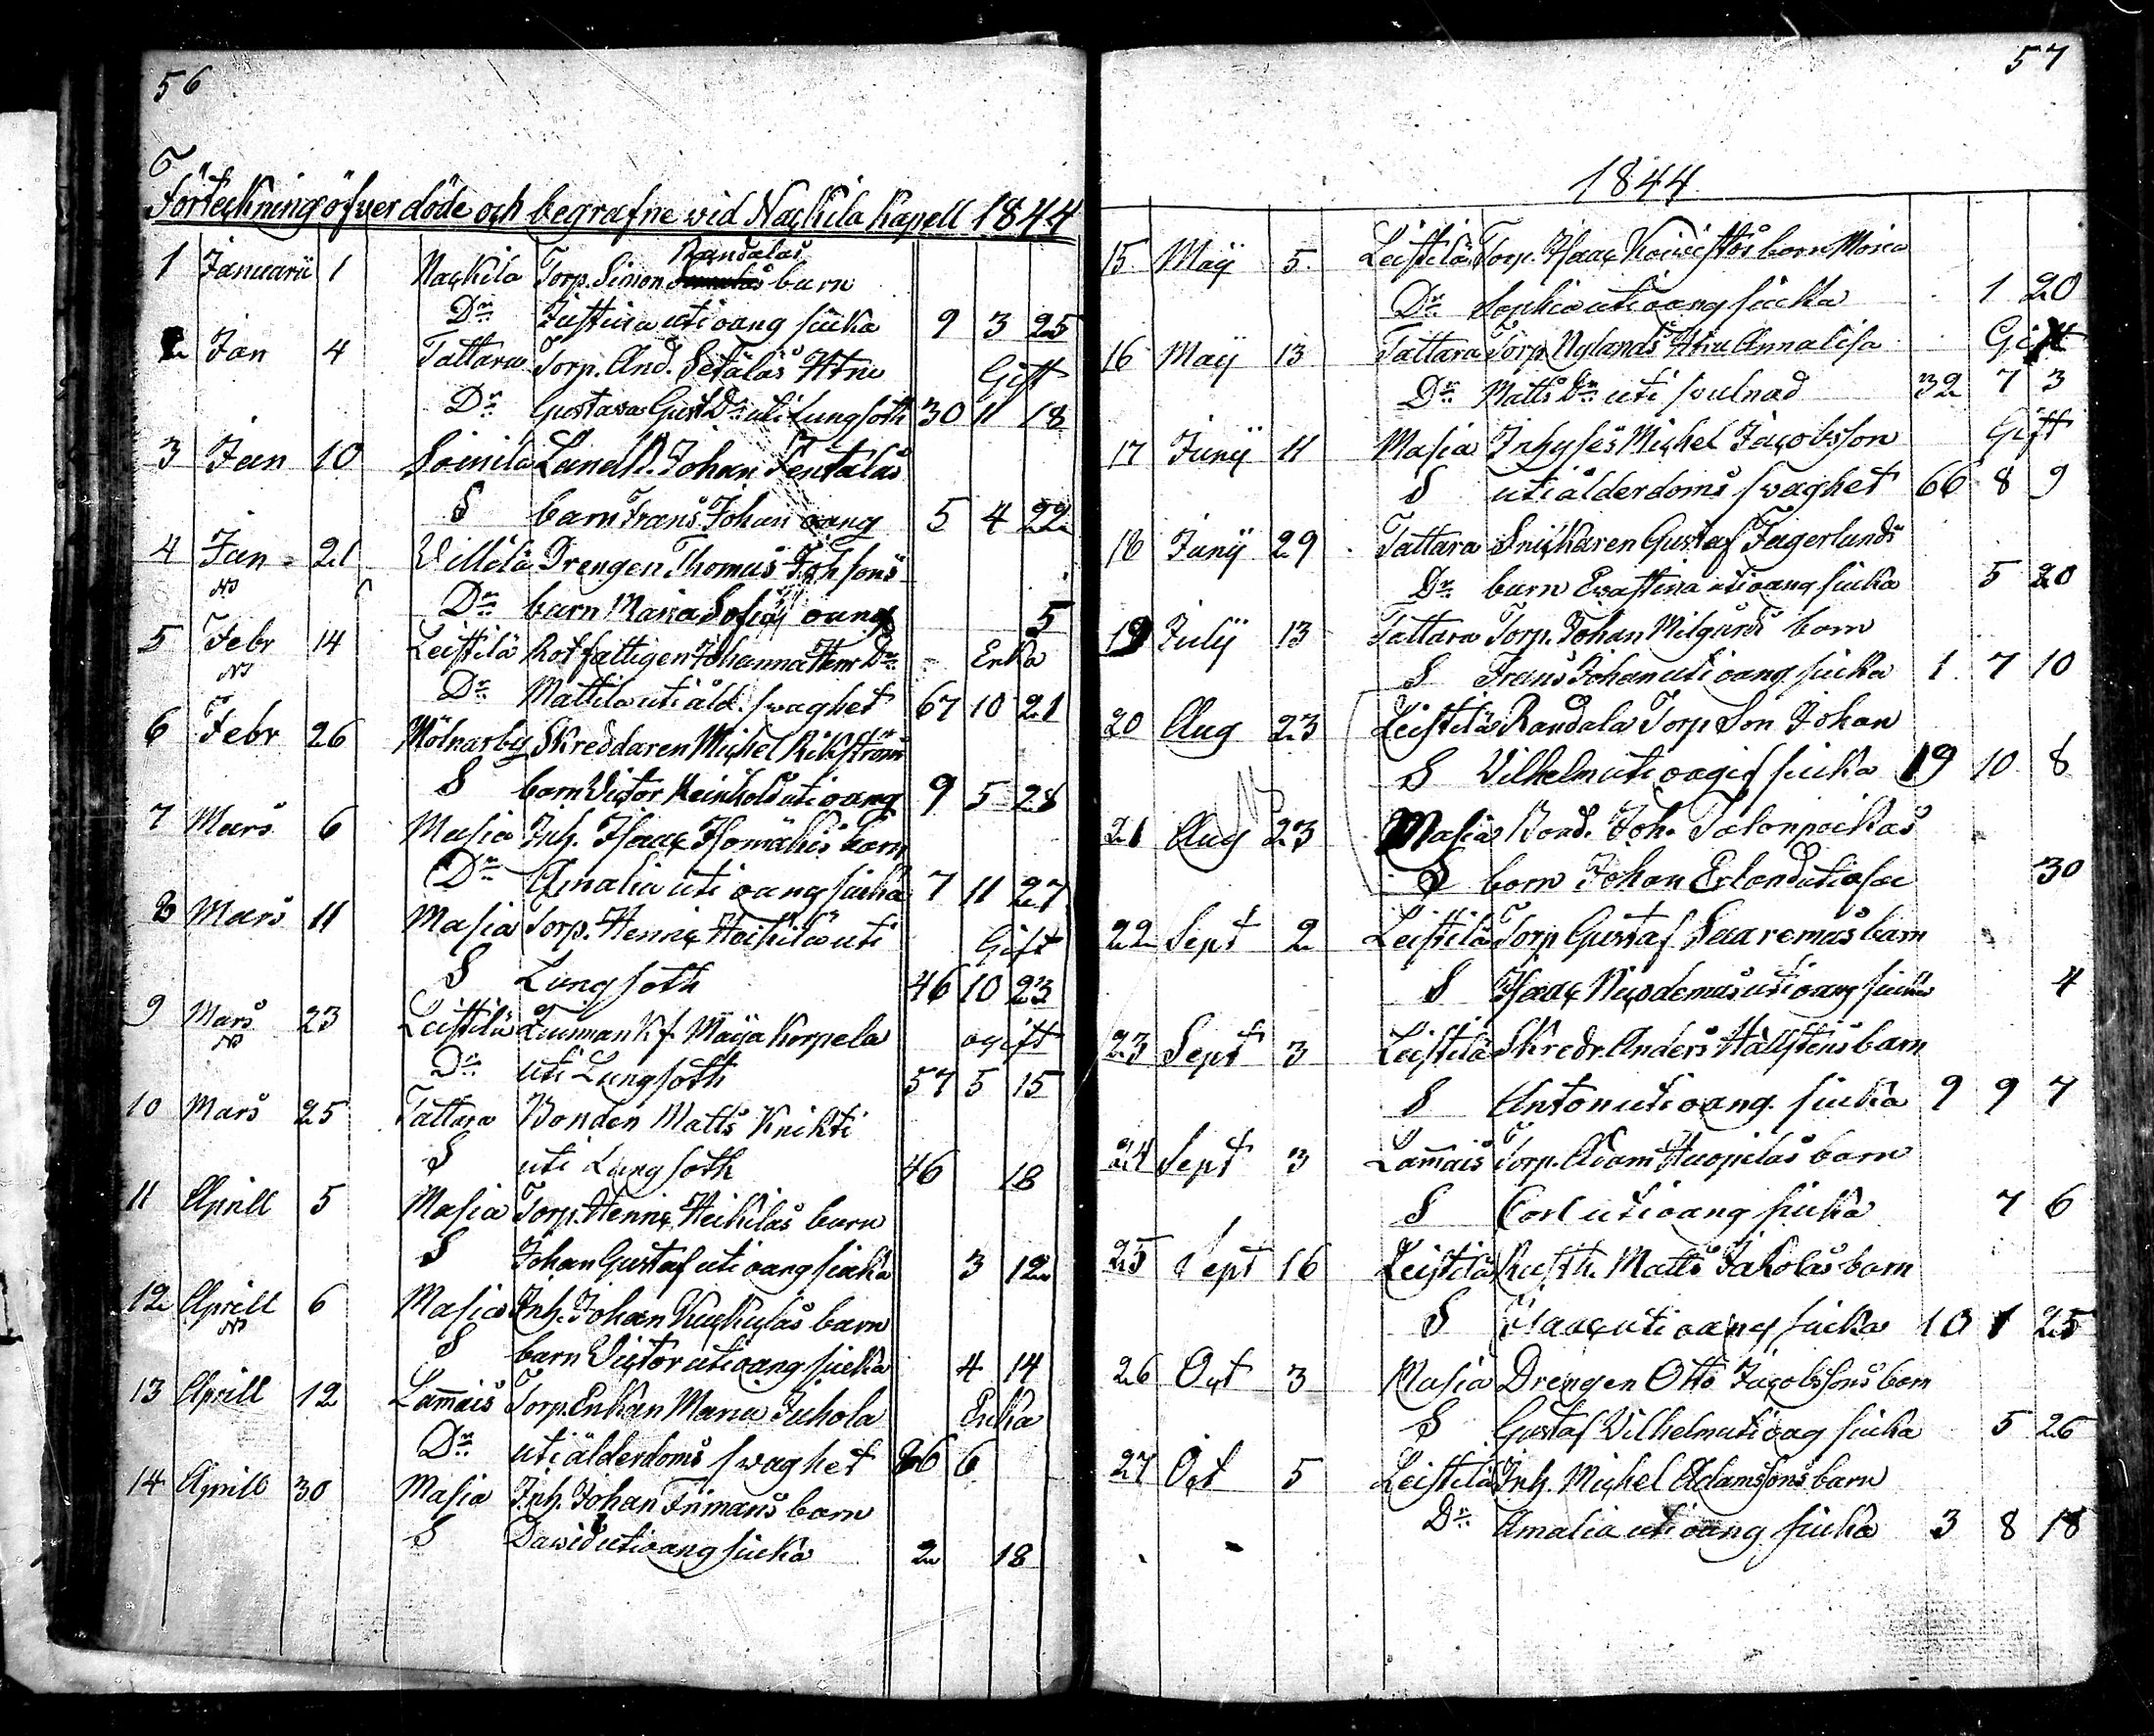 56
Förteckning öfver döde och begrafne wid Nackila Kapell 1844
Randalas
1 Januarii 1 Nackila Torp. Simon barn
Dr Justina uti oang siuka 9 3 25
2 Jan 4 Tattara Torp. And. Setäläs Htru Gift
Dr Gustava Gust Dr uti Lungsoth 30 11 18
3 Jan 10 Soinila Landb. Johan Pentaläs
S barn Frans Johan oang 5 4 22
4 Jan 21 Villilä Drengen Thomas Joh sons
NB Dr barn Maria Sofia oang 5
5 Febr 14 Leistilä Rotfattigen Johanna Henr Dr Enka
NB Dr Mattila uti åld. swaghet 67 10 21
6 Febr 26 Mölnarby Skreddaren Michel Rikströms
S barn Victor Reinhold uti oang 9 5 28
7 Mars 6 Masia Inh. Isaac Isomäkis barn
Dr Amalia uti oang siuka 7 11 27
8 Mars 11 Masia Torp. Henric Heikilä uti Gift
S Lungsoth 46 10 23
9 Mars 23 Leistilä Kf. Maija Korpela ogift
NB Dr uti Lungsoth 57 5 15
10 Mars 25 Tattara Bonden Matts Knihti
S uti Lungsoth 46 18
11 Aprill 5 Masia Torp. Henric Heikiläs barn
S Johan Gustaf uti oang siuka 3 12
12 Aprill 6 Masia Inh. Johan Kuckulas barn
NB S barn Victor uti oang siuka 4 14
13 Aprill 12 Lam̅ais Torp. Enkan Maria Juhola Enka
Dr uti ålderdoms swaghet 86 6
14 Aprill 30 Masia Inh. Johan Frimans barn
S Dawid uti oang siuka 2 18
57
1844
15 Maij 5 Leistilä Torp. Isaac Koiwistos barn Maria
Dr Sophia uti oang siuka 1 20
16 Maij 13 Tattara Torp Nylands Htru Annalisa Gift
Dr Matts Dr uti swulnad 32 7 3
17 Junij 11 Masia Inhyses Michel Jacobsson Gift
S uti ålderdoms swaghet 66 8 9
18 Junij 29 Tattara Snickaren Gustaf Fagerlunds
Dr barn Evastina uti oang siuka 5 20
19 Julij 13 Tattara Torp. Johan Milgrens barn
S Frans Johan uti oang siuka 1 7 10
20 Aug 23 Leistilä Randala Torp Son Johan
S Vilhelm uti oagif siuka 19 10 8
21 Aug 23 Masia Bond. Joh. Talonpoikas
S barn Johan Erland uti 30
22 Sept 2 Leistilä Torp Gustaf Saaremas barn
S Isaac Nicodemus uti oang siuka 4
23 Sept 3 Leistilä Skredr. Anders Hällstens barn
S Anton uti oang. siuka 9 9 7
24 Sept 3 Lam̅ais Torp. Adam Huopilas barn
S Carl uti oang siuka 7 6
25 Sept 16 Leistilä Rusth. Matts Jakolas barn
S Isaac uti oang siuka 10 1 25
26 Oct 3 Masia Drengen Otto Jacobssons barn
S Gustaf Vilhelm uti oag siuka 5 26
27 Oct 5 Leistilä Inh. Michel Adamssons barn
Dr Amalia uti oang siuka 3 8 18